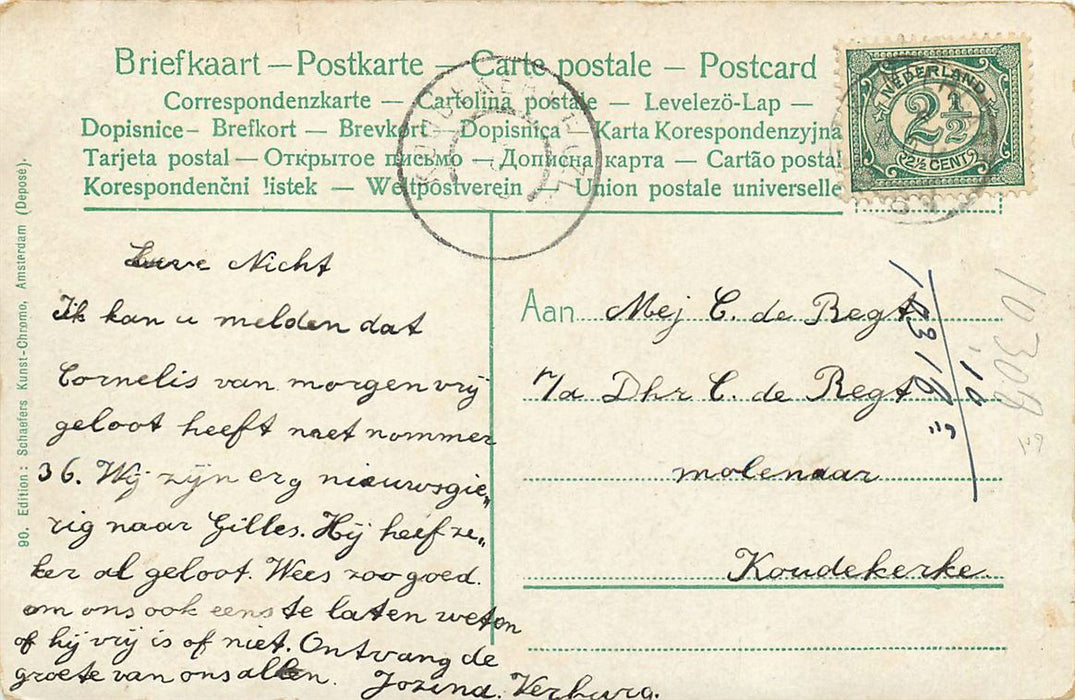 Briefkaart — Postkarte — Carte postale — Postcard
Correspondenzkarte — Cartolina postale — Levelezö-Lap —
Dopisnice — Brefkort — Brevkort — Dopisnica — Karta Korespondenzyjna
Tarjeta postal — Открытое письмо — Дописна карта — Cartão postal
Korespondenční listek — Weltpostverein — Union postale universelle
NEDERLAND
2½
2½ CENT
90. Edition: Schaefers Kunst-Chromo, Amsterdam (Deposé).
Lieve Nicht
Ik kan u melden dat
Cornelis van morgen vrij
geloot heeft met nommer
36. Wij zijn erg nieuwsgie„
rig naar Gilles. Hij heef ze„
ker al geloot. Wees zoo goed.
om ons ook eens te laten weten
of hij vrij is of niet. Ontvang de
groete van ons allen. Jozina. Verburg.
Aan Mej C. de Regt
p/a Dhr C. de Regt
molenaar
Koudekerke.